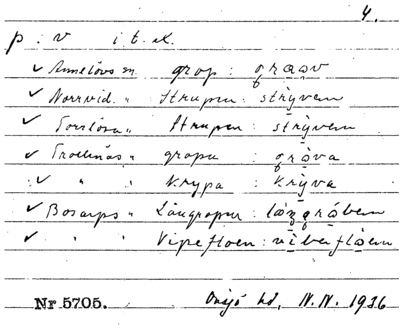 4.
p : v i t. ex.
✓ Annelövs sn. grop : graav
✓ Norrvid. " Strupen : strỳven
✓ Torrlösa " Strupen : strỳven
✓ Trollenäs " gropa : gràva
✓ " " krypa : krỳva
✓ Bosarps " Långropen : låŋgråben
✓ " " Vipefloen : vibeflåen
Nr 5705. Onsjö hd, N.N. 1936